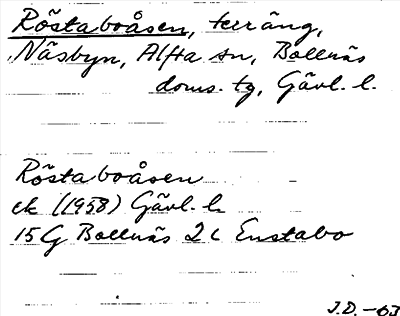 Röstaboåsen, terräng,
Näsbyn, Alfta sn, Bollnäs
doms. tg, Gävl. l.
Röstaboåsen
ek (1958) Gävl. l.
15G Bollnäs 2c Enstabo
J.D. -63